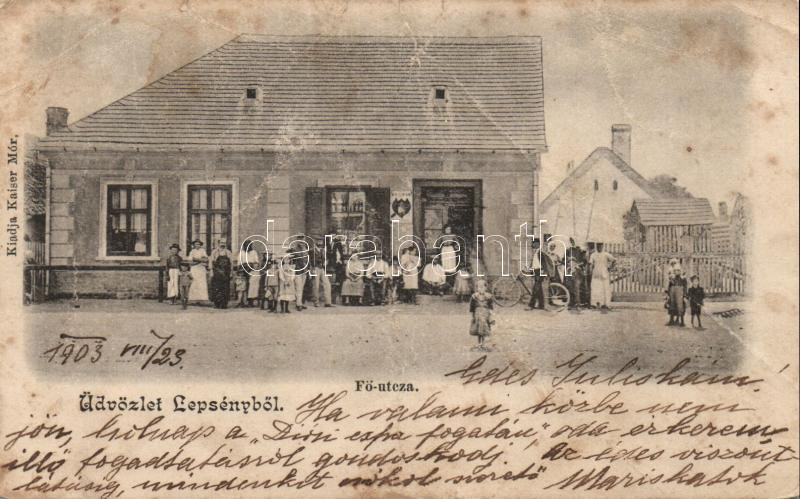 Kiadja Kaiser Mór.
darabanth.com
1903 VIII/23.
Fö-utcza.
Üdvözlet Lepsényből.
Édes Juliskám!
Ha valami közbe nem
jön, holnap a „ fogatán", oda érkezem
illő fogadtatásról gondoskodj. Az édes viszont
látásig, mindenkit csókol szerető Mariskátok